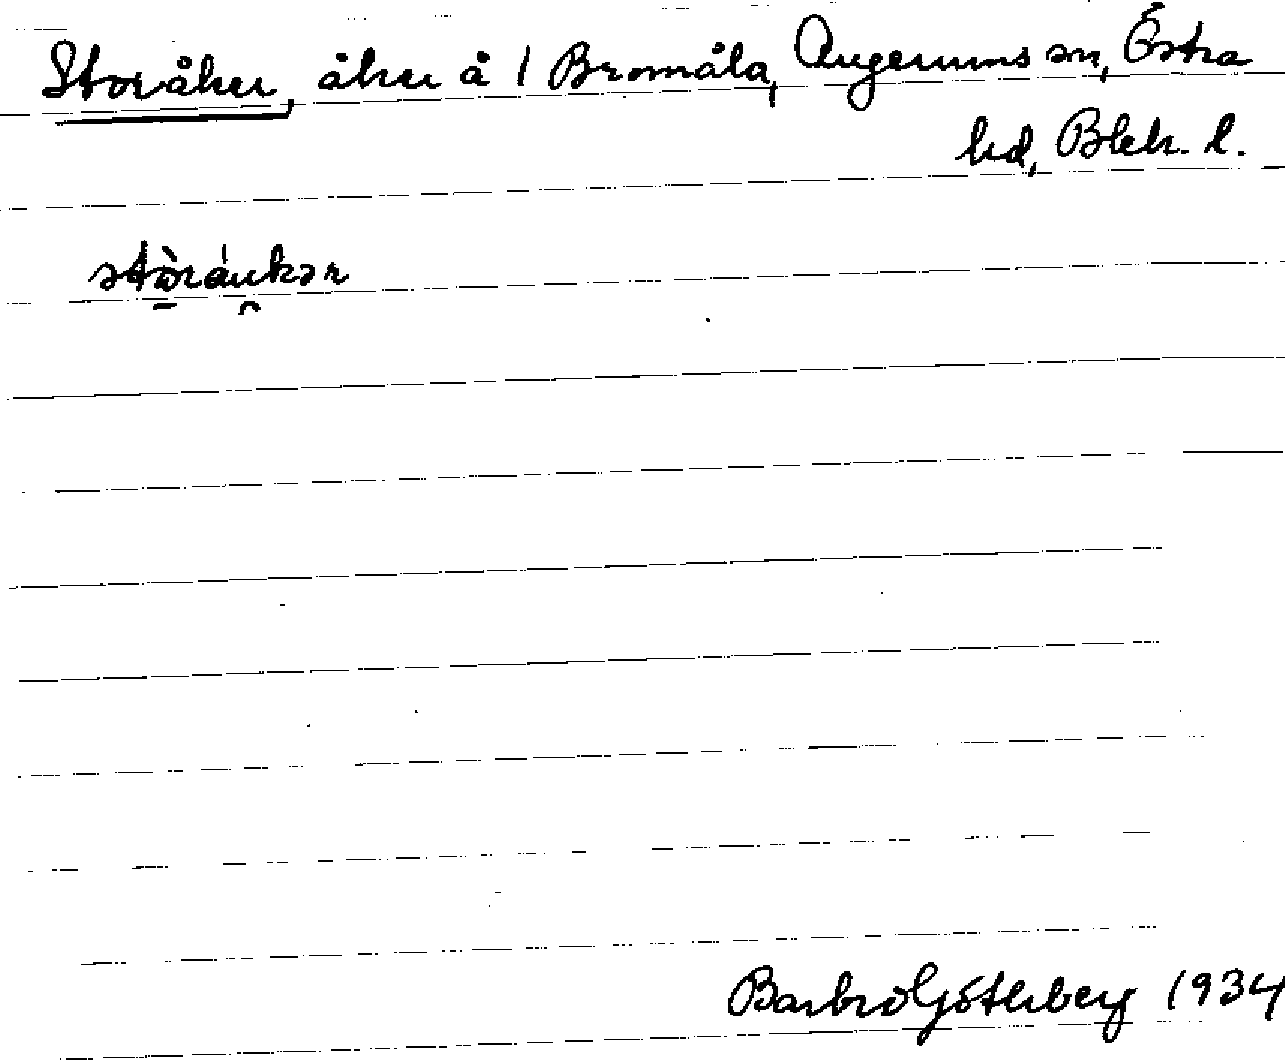 Storåker, åker å 1 Bromåla, Augerums sn, Östra
hd, Blek. l.
stòráukər
Barbro Götherberg 1934